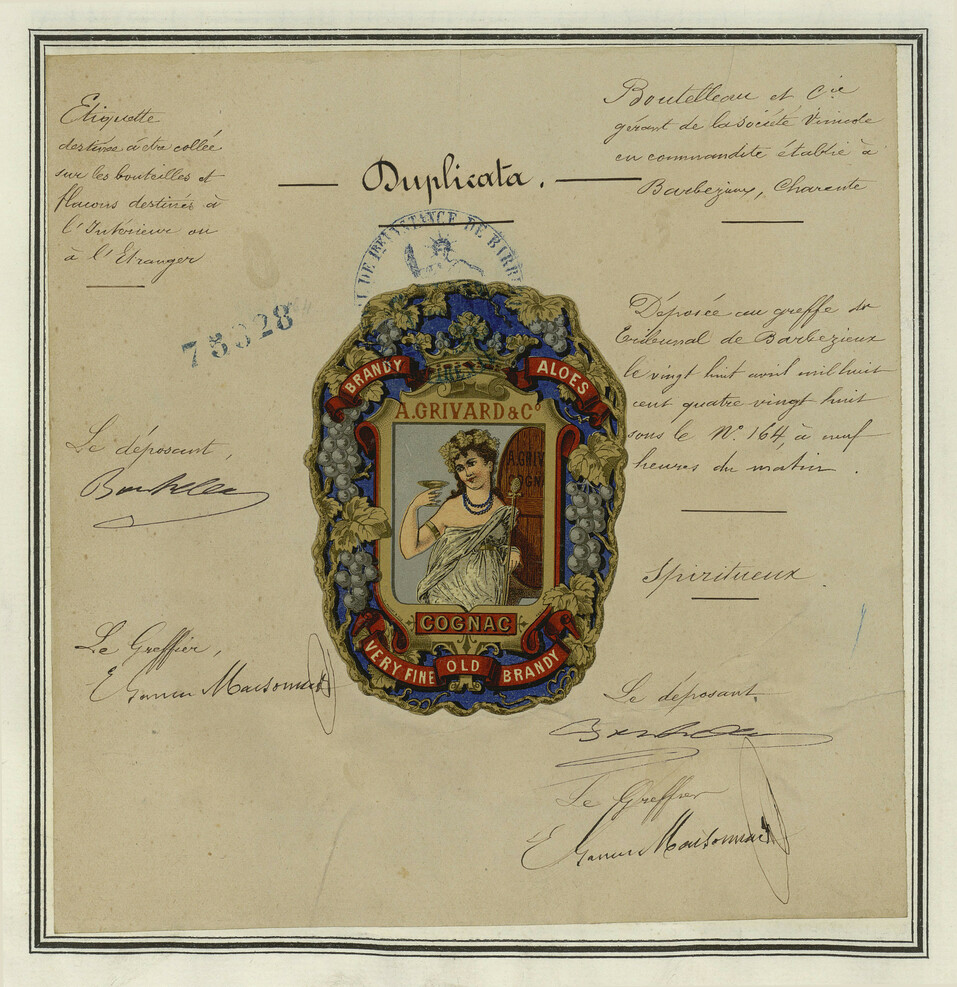 Etiquette
destinée à être collée
sur les bouteilles et
flacons destinés à
l'Intérieur ou
à l'Etranger
Duplicata.
Boutelleau et Cie
gérant de la Société Vinicole
en commandite établie à
Barbezieux, Charente
DE 1ERE INSTANCE DE BARB
75328
Déposée au greffe du
Tribunal de Barbezieux
le vingt huit avril mil huit
cent quatre vingt huit
sous le N° 164, à neuf
heures du matin.
BRANDY
ALOES
A. GRIVARD & Co
A. GRIV
OGNA
COGNAC
VERY FINE OLD BRANDY
Le déposant,
Boutelleau
Spiritueux
Le Greffier,
Maisonneuve
Le déposant
Boutelleau
Le Greffier
Maisonneuve